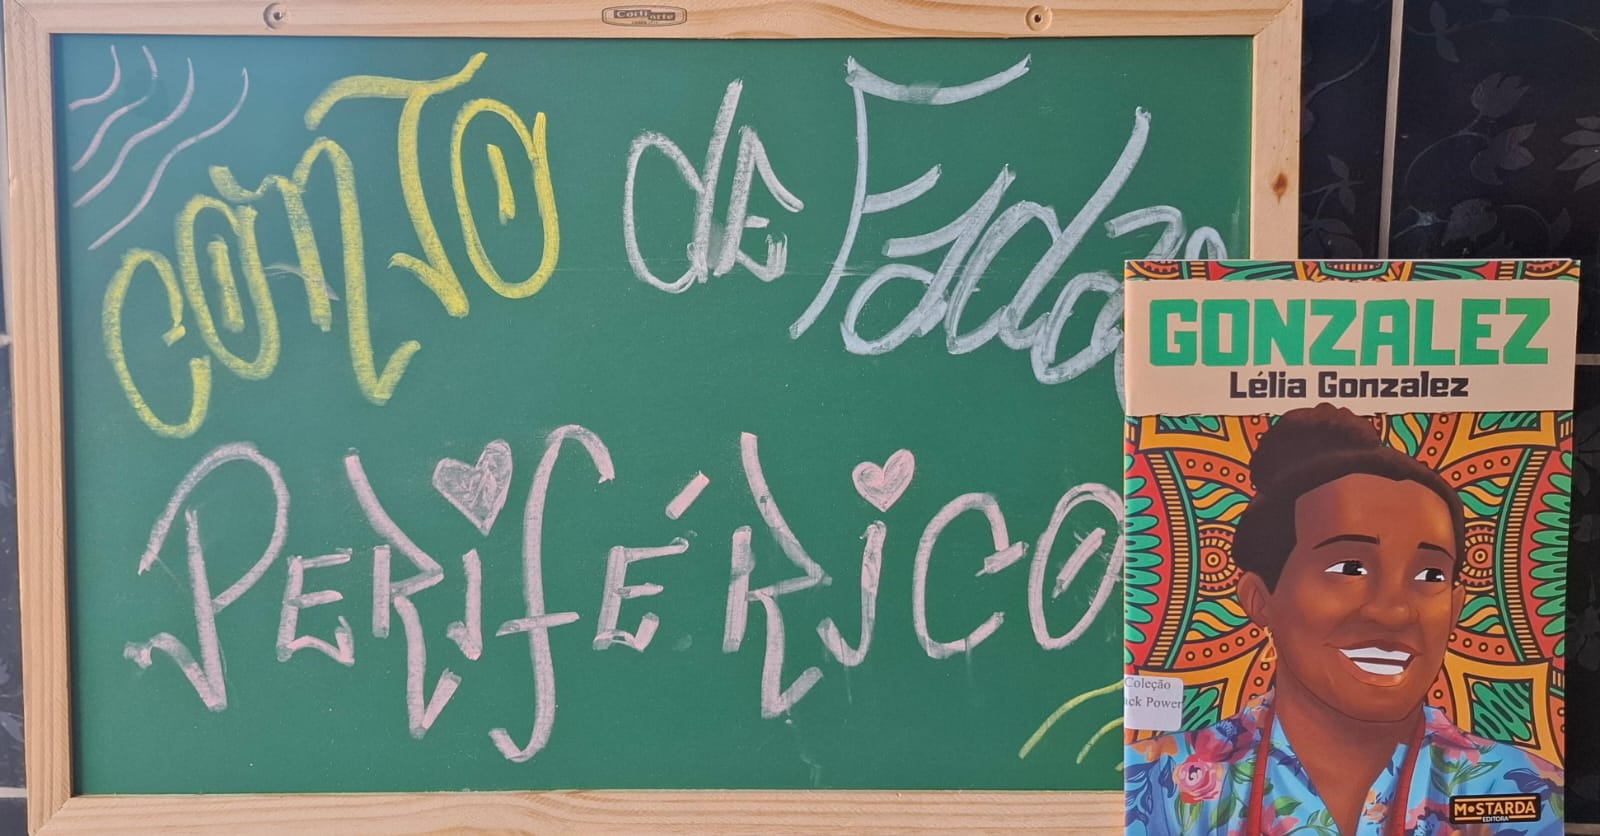 Corti arte
CONTO de Fadas
PERIFÉRICO
GONZALEZ
Lélia Gonzalez
Coleção
ack Power
MOSTARDA
EDITORA